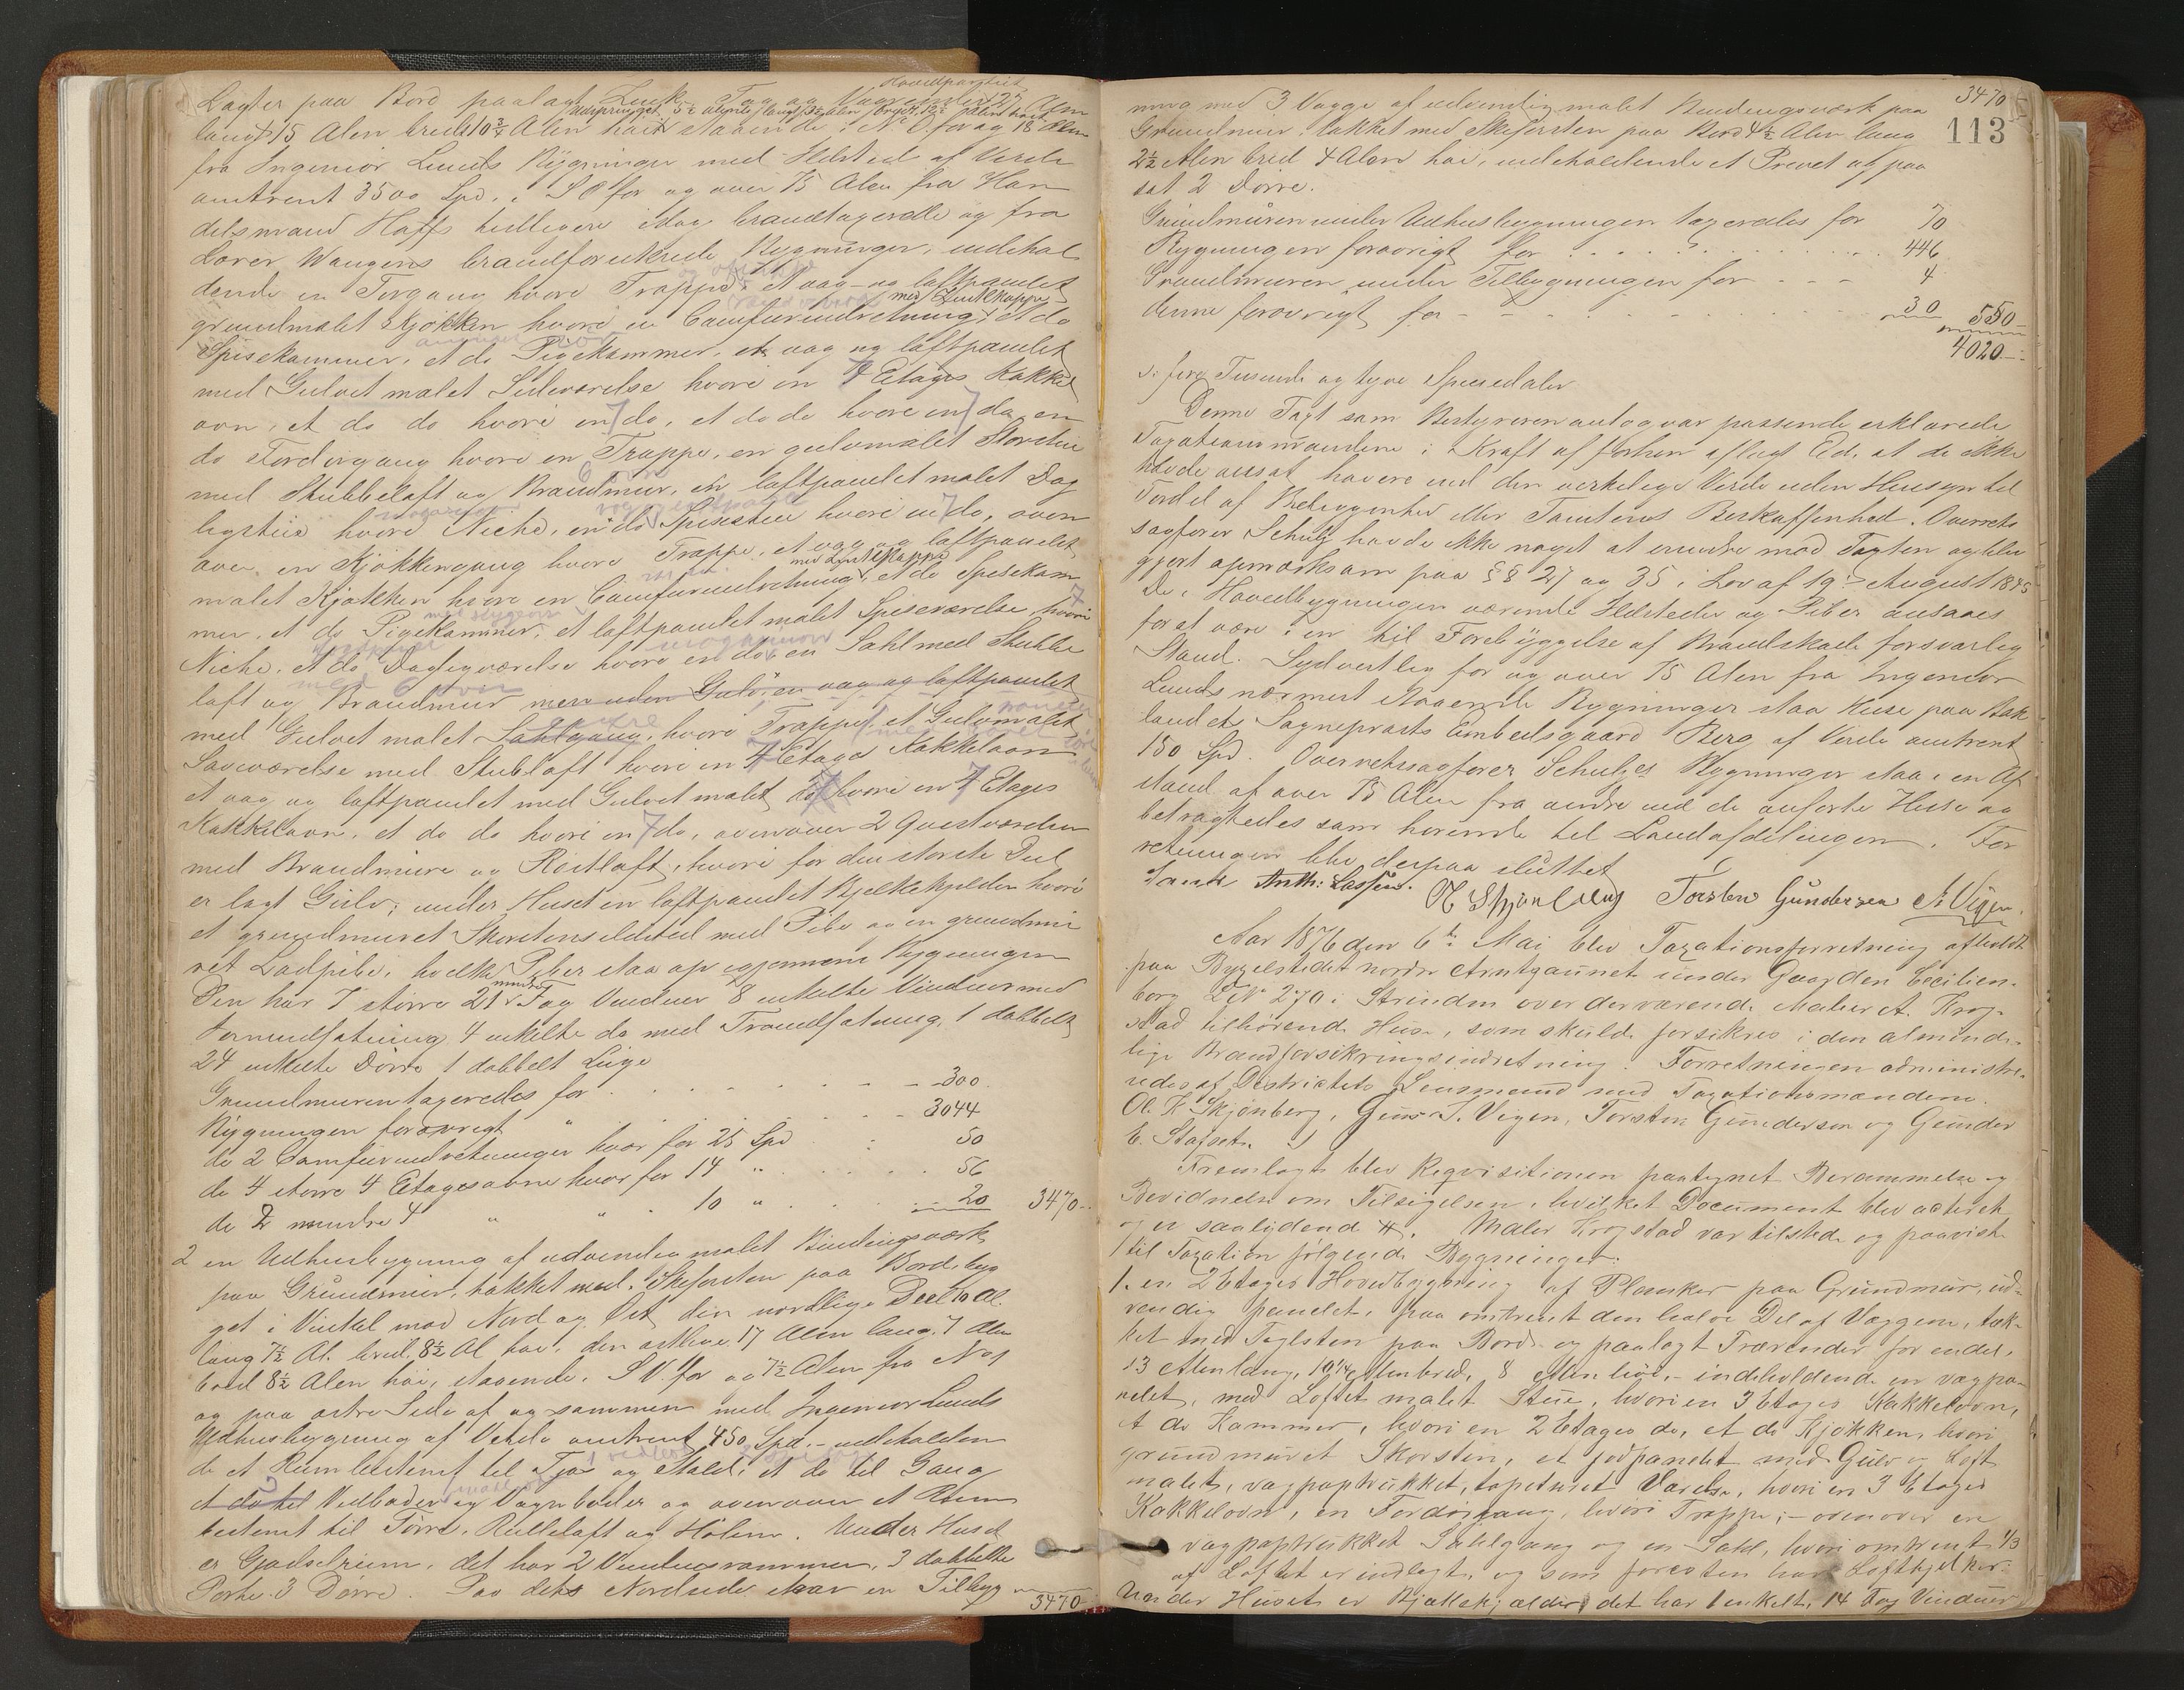 Hovedpartiet
Lagter paa Bord paalagt Tag og 27 Alen
Udspringet 5½ Alen langt 3½ Alen bredt 12½ Alen høit
langt 15 Alen bredt 10¾ Alen høit staaende i N.O. for og 18 Alen
fra Ingeniør Lunds Bygninger med Ildsted af Verdi
omtrent 3500 Spd., i S.O. for og over 75 Alen fra Han
delsmand Hoffs tidligere idag brandtaxerede og fra
Farver Wangens brandforsikrede Bygninger, indehol
dende en Forgang hvori Trappe, et væg- og loftpanelet
med Zinkkappe
grundmalet Kjøkken hvori en Comfurindretning, et do
Spisekammer, et do Pigekammer, et væg og loftpanelet
med Gulvet malet Sideværelse hvori en 4 Etages Kakkel
ovn, et do do hvori en do, et do do hvori en do, en
do Fordørgang hvori en Trappe, en gulvmalet Storstue
med Stubbeloft og Brandmur, en loftpanelet malet Dag
ligstue hvori Niche, en do Spisestue hvori en do, oven
over en Kjøkkengang hvori Trappe, et væg og loftpanelet
med Zinkkappe
malet Kjøkken hvori en Comfurindretning, et do Spisekam
mer, et do Pigekammer, et loftpanelet malet Spiseværelse, hvori
Niche, et do Dagligværelse hvori en do, en Sahl med Stubbe
loft og Brandmur men uden Gulv, en væg og loftpanelet
med Gulvet malet Sahlgang, hvori Trappe, et Gulvmalet
Soveværelse med Stubloft hvori en 4 Etages Kakkelovn
et væg og loftpanelet med Gulvet malet do hvori en 4 Etages
Kakkelovn, et do do hvori en do, ovenover 2 Qvistværelser
med Brandmure og Røstloft, hvori for den største Del
er lagt Gulv; under Huset en loftpanelet Bjelkekjelder hvori
et grundmuret Skorstensildsted med Pibe og en grundmu
ret Ladpibe, hvilke Piber staa op igjennem Bygningen
Den har 7 større 21 mindre Fag Vinduer 8 enkelte Vinduer med
Jernindfatning 4 enkelte do med Træindfatning, 1 dobbelt
24 enkelte Dørre 1 dobbelt Luge
Grundmuren taxeredes for . . . - - 300.
Bygningen forøvrigt " . . . - 3044
de 2 Comfurindretninger hver for 25 Spd . . : 50
de 4 større 4 Etagesovne hver for 14 " . . . . 56
de 2 mindre 4 " " . 10 " . . . 20 3470 -
2 en Udhusbygning af udvendig malet Bindingsværk
paa Grundmur, takket med Skifersten paa Bord byg
get i Vinkel mod Nord og Øst den nordlige Deel 10 Al.
lang 7½ Al. bred, 8½ Al høi, den østlige 17 Alen lang, 7 Alen
bred 8½ Alen høi, staaende i S.V. for og 7½ Alen fra No 1
og paa østre Side af og sammen med Ingeniør Lunds
Udhusbygning af Verdi omtrent 450 Spd. - indeholden
de et Rum bestemt til Fjøs og Stald, et do til Gang
et do til Vedboder og Vognboder og ovenover et Rum
bestemt til Tørre, Rulleloft og Høling. Under Huset
er Gjødselrum, det har 2 Vinduesrammer, 3 dobbelte
Porte 3 Dørre. Paa dets Nordside staar en Tilbyg
3470
3470
113
ning med 3 Vægge af udvendig malet Bindingsværk paa
Grundmur, takket med Skifersten paa Bord 4½ Alen lang
2½ Alen bred 4 Alen høi, indeholdende et Privet og paa
sat 2 Dørre.
Grundmuren under Udhusbygningen taxeredes for 70
Bygningen forøvrigt for . . . . 446
Grundmuren under Tilbygningen for - - - 4
denne forøvrigt for - - - 30 550 -
4020 -
S. fire Tusinde og tyve Speciedaler
Denne Taxt som Bestyreren antog var passende erklærede
Taxationsmændene i Kraft af forhen aflagt Ed, at de ikke
havde ansat høiere end den virkelige Verdi uden Hensyn til
Fordel af Beliggenhed eller Tomtens Beskaffenhed. Overrets
sagfører Schulz havde ikke noget at erindre mod Taxten og blev
gjort opmærksom paa §§ 27 og 35 i Lov af 19de August 1845
De i Hovedbygningen værende Ildsteder og Piber ansaaes
for at være i en til Forebyggelse af Brandskade forsvarlig
Stand. Sydvestlig for og over 75 Alen fra Ingeniør
Lunds nærmest staaende Bygninger staa Huse paa Bak
landets Sogneprests Embedsgaard Berg af Verdi omtrent
150 Spd. Overretssagfører Schulzes Bygninger staa i en Af
stand af over 75 Alen fra andre end de anførte Huse og
betragtedes som hørende til Landafdelingen. For
retningen blev derpaa sluttet
Anth: Lassen. O K Skjønberg Torsten Gundersen S. Vigen.
Aar 1876 den 6te Mai blev Taxationsforretning afholdt
paa Bygselstedet nordre Arntgaunet under Gaarden Cecilien-
borg LNr 270 i Strinden over derværende Maler A. Krog-
stad tilhørende Huse, som skulde forsikres i den alminde-
lige Brandforsikringsindretning. Forretningen administre-
redes af Districtets Lensmand med Taxationsmændene.
Ol. K Skjønberg, Gunr S. Vigen, Torsten Gundersen og Gunder
E. Stafset.
Fremlagt blev Reqvisitionen paategnet Berammelse og
Bevidnelse om Tilsigelsen, hvilket Document blev acteret
og er saalydende #. Maler Krogstad var tilstede og paaviste
til Taxation følgende Bygninger.
1. en 2 Etages Hovedbygning af Planker paa Grundmur, ud-
vendig panelet, paa omtrent den halve Del af Væggene, tæk-
ket med Taglsten paa Bord og paalagt Trærender for endel,
13 Alen lang, 10¼ Alen bred, 8 Alen høi, - indeholdende en vægpa-
nelet, med Loftet malet Stue, hvori en 3 Etages Kakkelovn,
et do Kammer, hvori en 2 Etages do, et do Kjøkken, hvori
grundmuret Skorsten, et fodpanelet med Gulv og Loft
malet, vægpaptrukket, tapetseret Værelse, hvori en 3 Etages
Kakkelovn, en Fordørgang, hvori Trappe; - ovenover en
vægpaptrukket Sahlgang og en Sahl, hvori omtrent 1/3
af Loftet er indlagt, og som foresten har Loftbjelker.
Under Huset er Bjelkekjælder, det har 1 enkelt, 14 Fag Vinduer